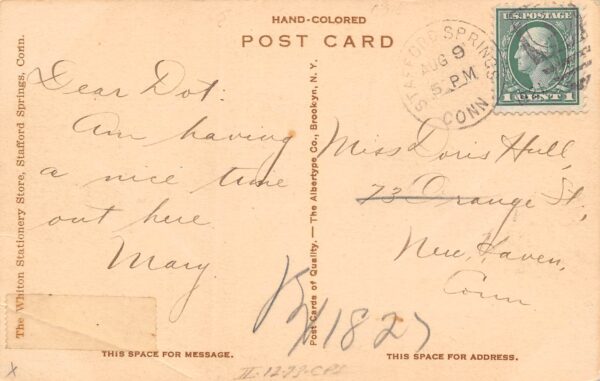 HAND-COLORED
POST CARD
The Whiton Stationery Store, Stafford Springs, Conn.
Dear Dot:
Am having
a nice time
out here
Mary.
THIS SPACE FOR MESSAGE.
Post Cards of Quality. — The Albertype Co., Brooklyn, N. Y.
STAFFORD SPRINGS
AUG 9
5 PM
CONN.
U.S. POSTAGE
1 CENT 1
Miss Doris Hull,
73 Orange St,
New Haven,
Conn
1827
THIS SPACE FOR ADDRESS.
II-12-79-CPS
X